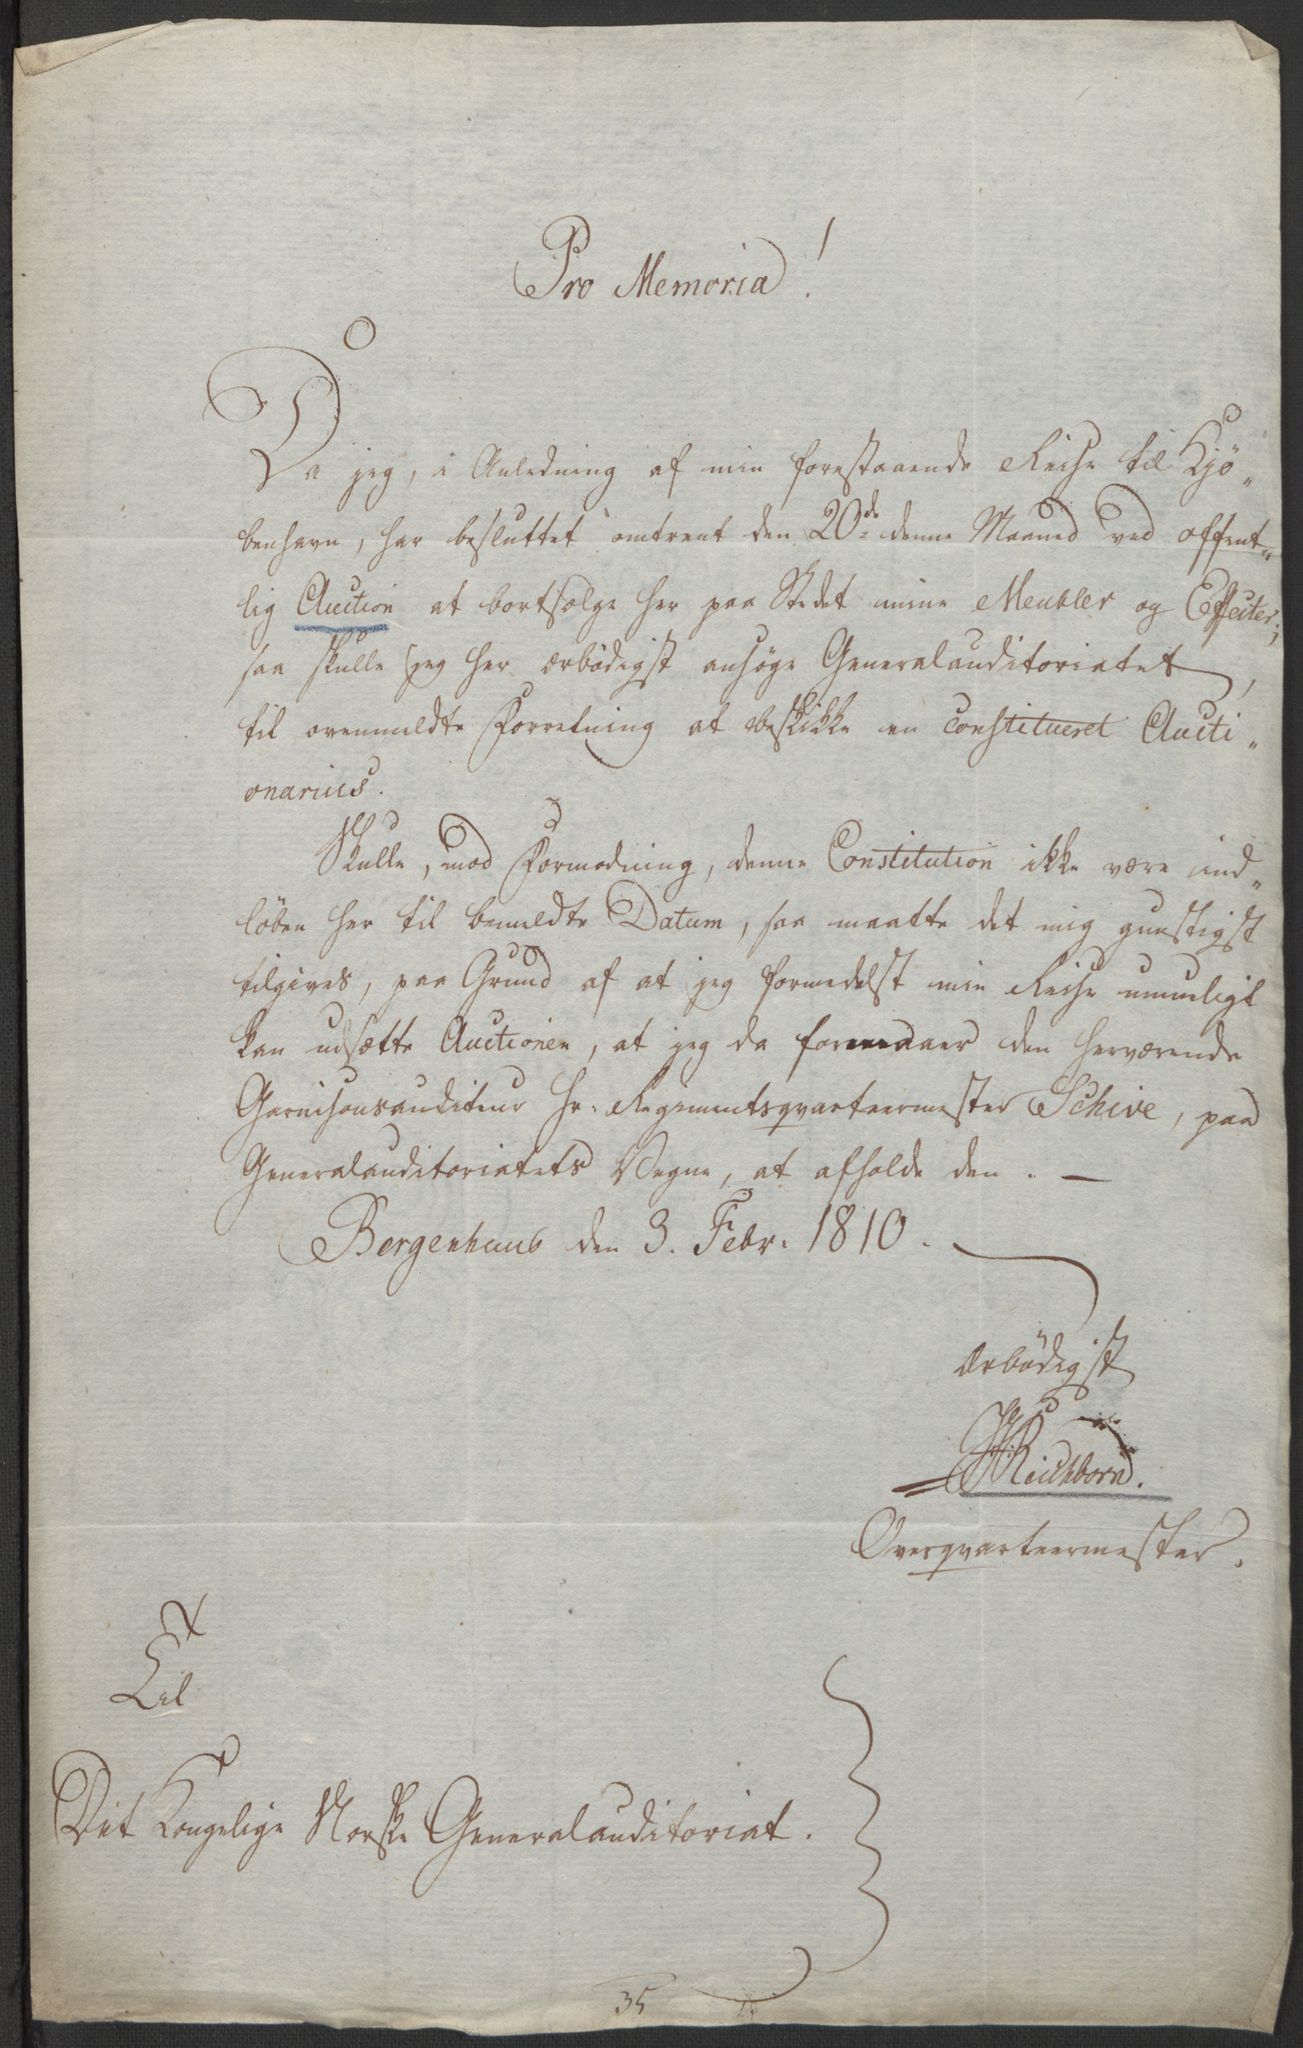 Pro Memoria!
Da jeg, i Anledning af min forestaaende Reise til Kjö„
benhavn, har besluttet omtrent den 20de denne Maaned ved offent„
lig Auction at bortsælge her paa Stedet mine Meubler og Effecter;
saa skulle jeg her ærbödigst ansöge Generalauditoriatet,
til ovenmeldte Forretning at beskikke en constitueret Aucti„
onarius.
Skulle, mod Formodning, denne Constitution ikke være ind„
löben her til bemeldte Datum, saa maatte det mig gunstigst
tilgives, paa Grund af at jeg formedelst min Reise umueligt
kan udsætte Auctionen, at jeg da formaaer den herværende
Garnisonsauditeur Hr. Regimentsqvarteermester Schive, paa
Generalauditoriatets Vegne, at afholde den. —
Bergenhuus den 3. Febr. 1810.
Ærbödigst
Richborn.
Overqvarteermester.
Til
Det Kongelige Norske Generalauditoriat.
35